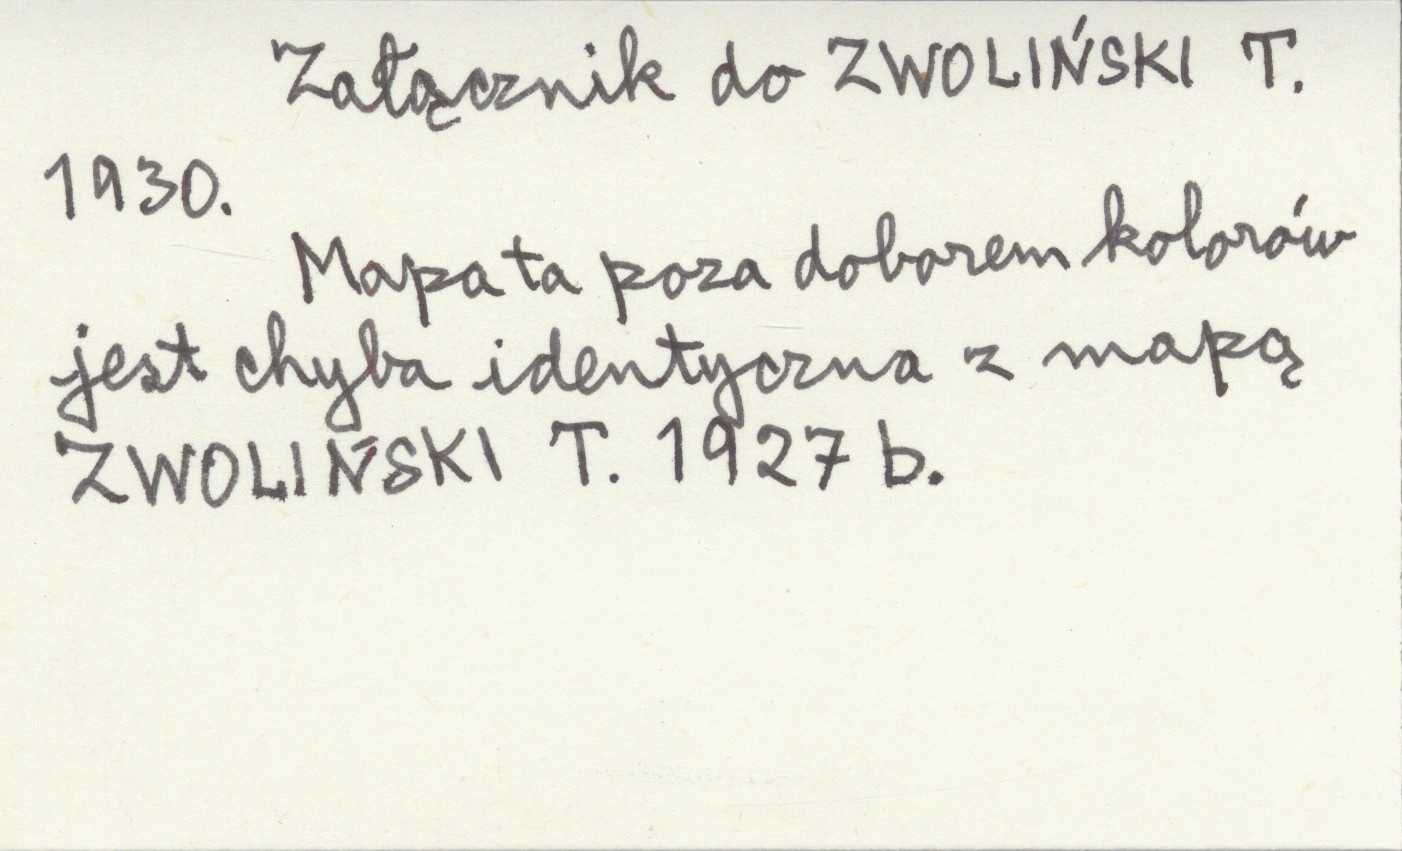 Załącznik do ZWOLIŃSKI T.
1930.
Mapa ta poza doborem kolorów
jest chyba identyczna z mapą
ZWOLIŃSKI T. 1927 b.